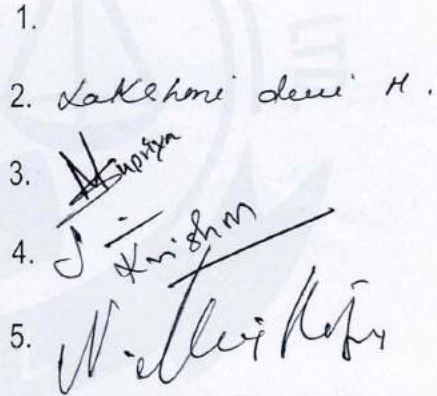 1.
2. Lakshmi devi M.
3. Supriya
4. J. Krishna
5.